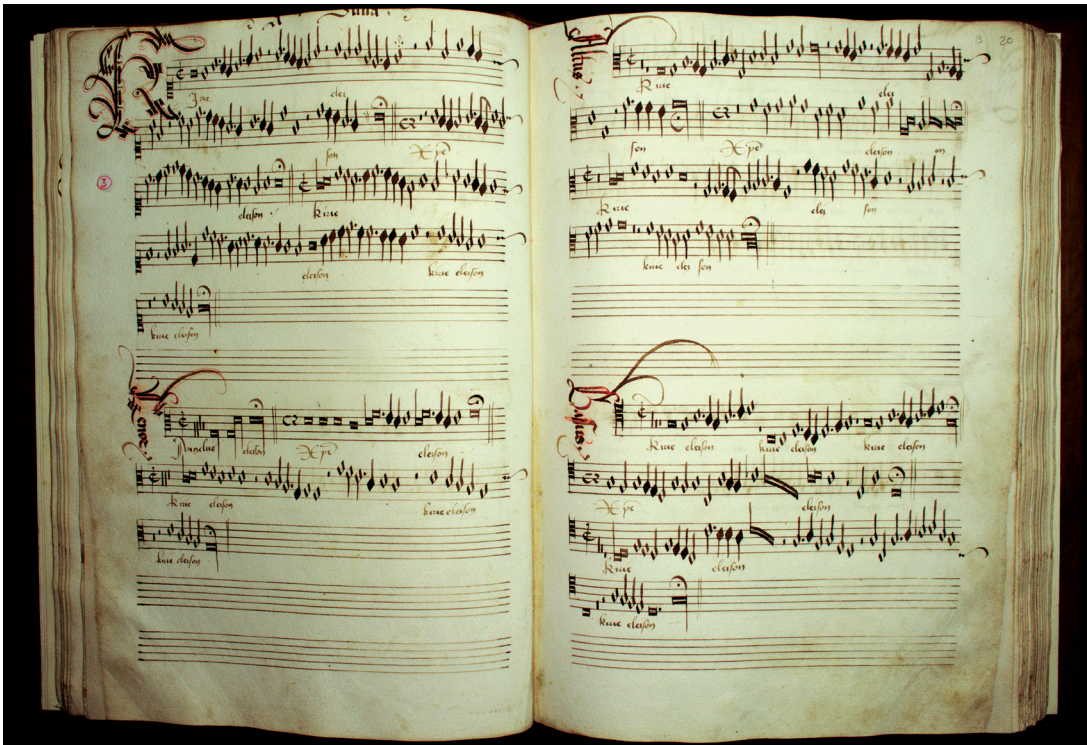 elei
son Xpe
3
eleison kirie
eleison kirie eleison
kirie eleison
Tenor
eleison Xpe eleison
kirie eleison kirie eleison
kirie eleison
20
Altus
Kirie elei
son Xpe eleison
Kirie elei son
kirie elei son
Bassus
Kirie eleison kirie eleison kirie eleison
Xpe eleison
Kirie eleison
kirie eleison